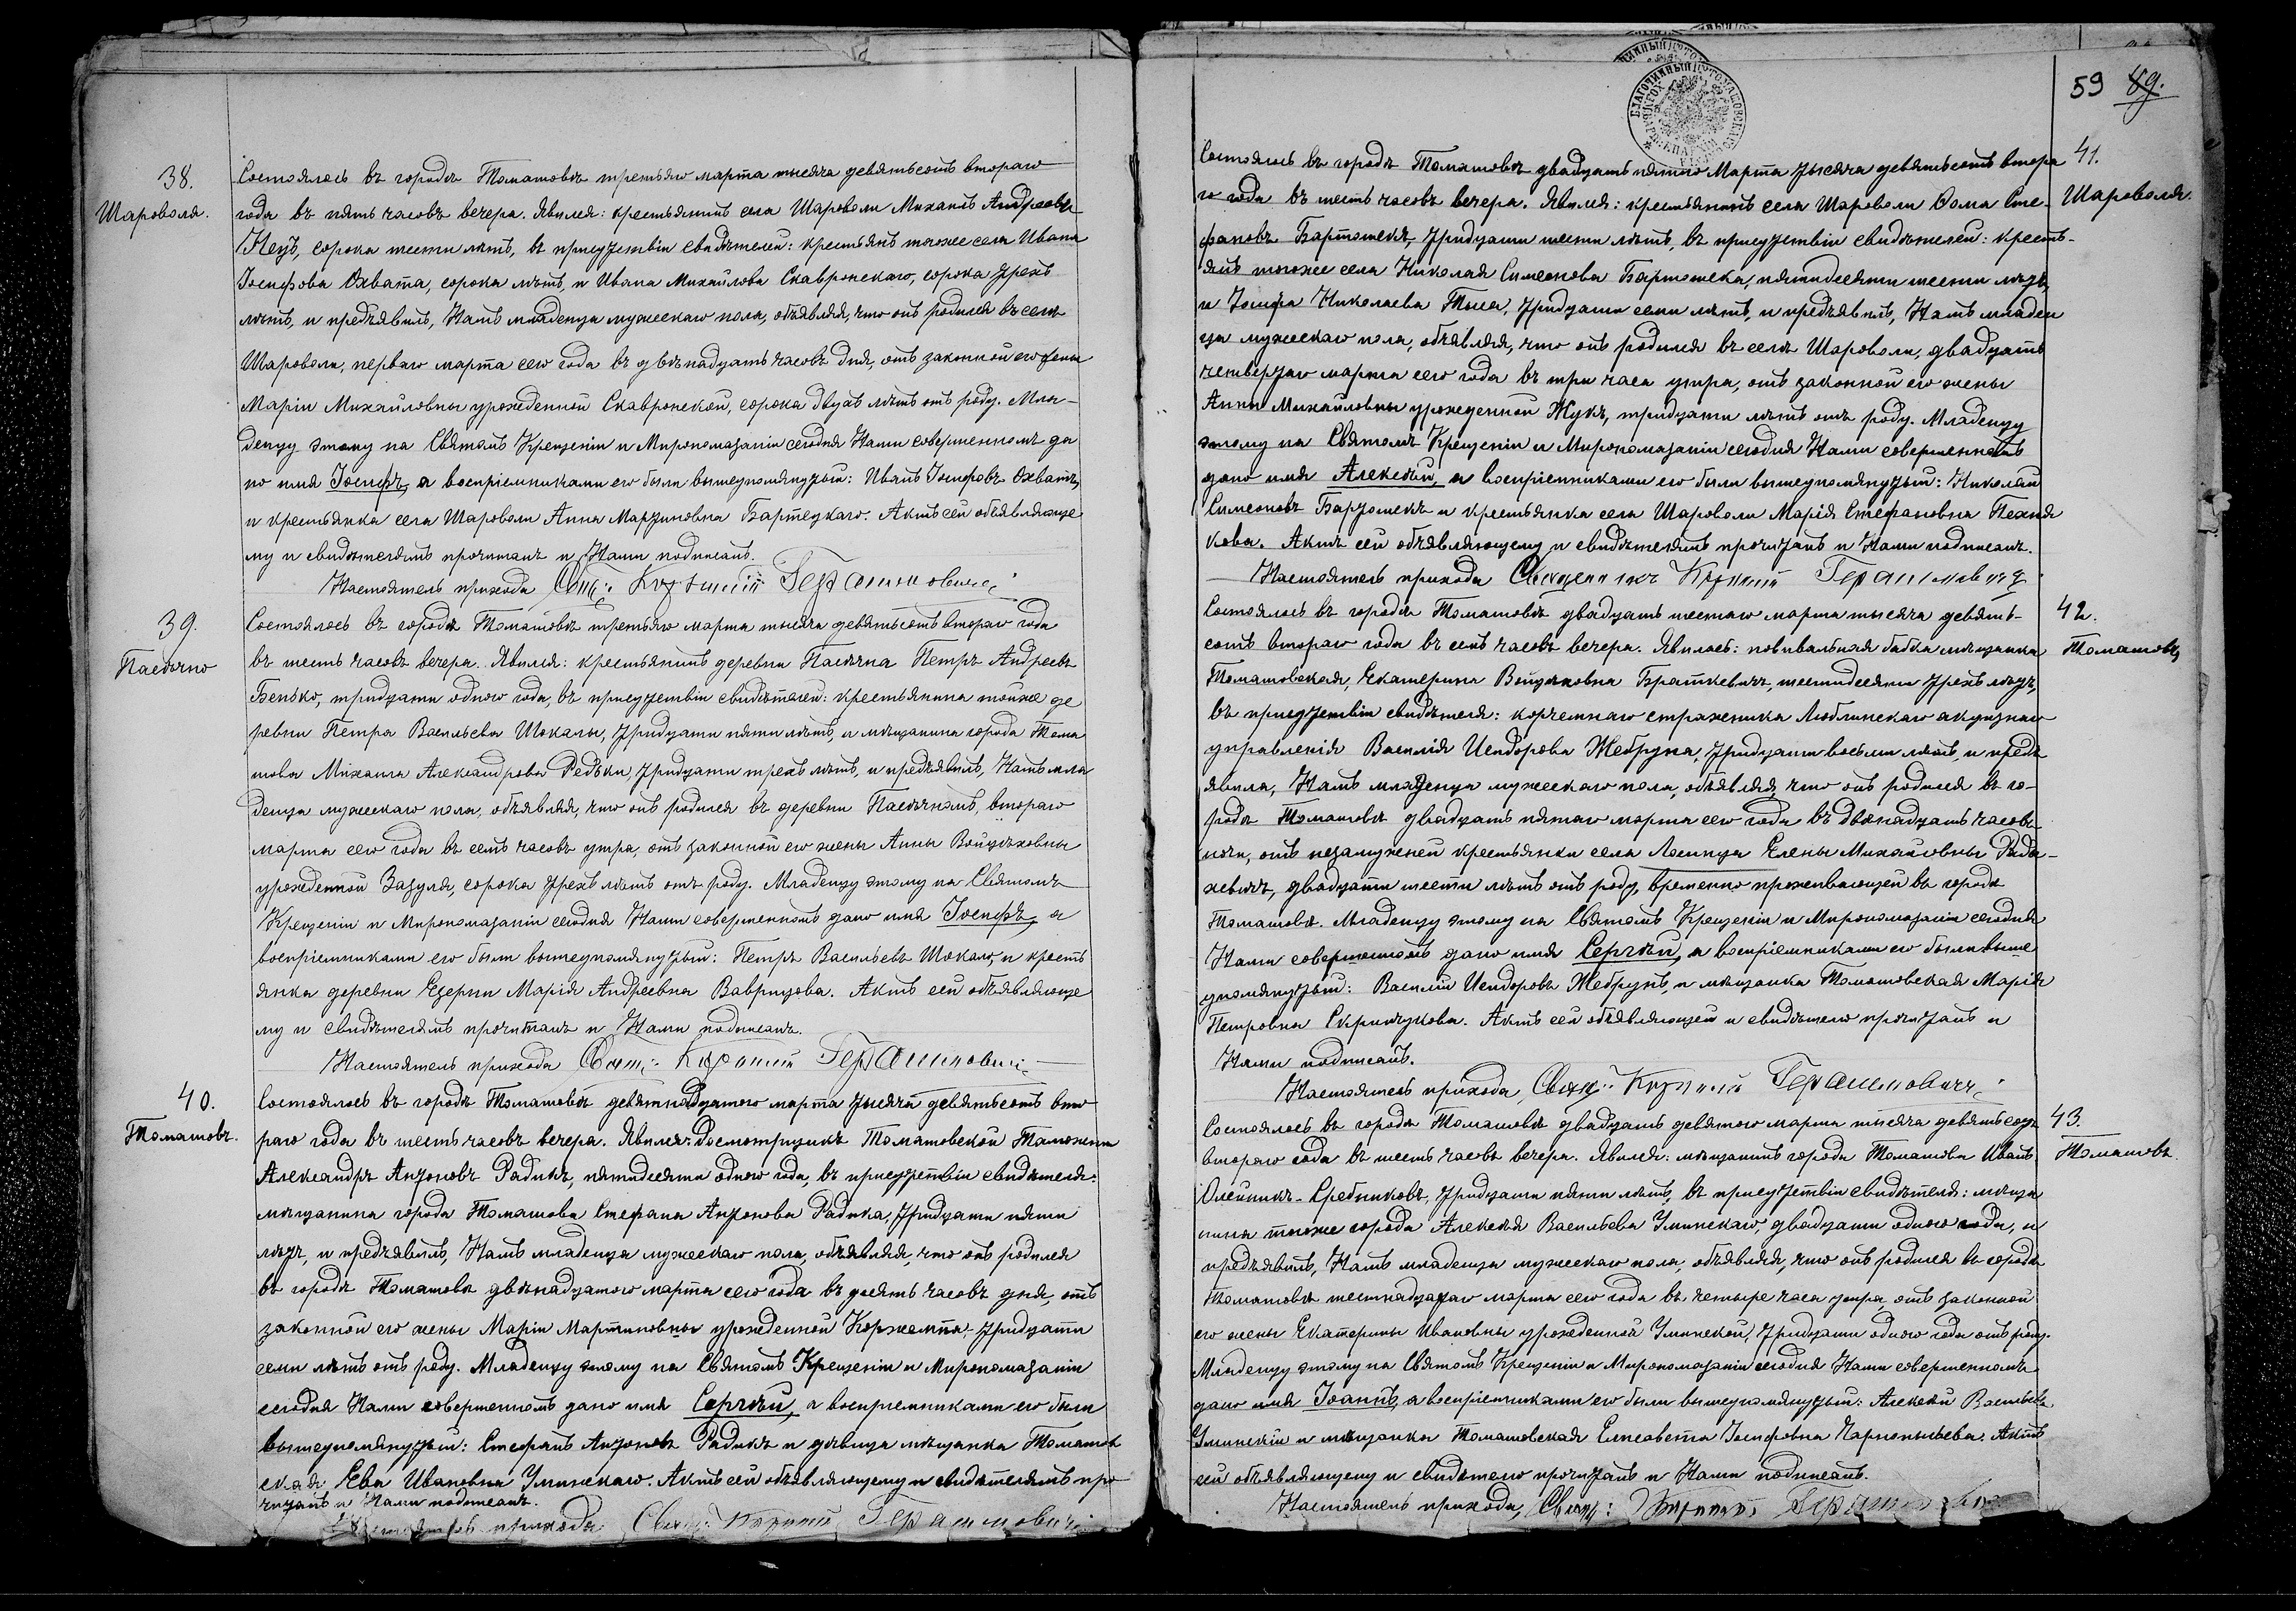 38.
Шароволя.
Состоялось въ городѣ Томашовѣ третьяго марта тысяча девятьсотъ втораго
года въ пять часовъ вечера. Явился: крестьянинъ села Шароволи Михаилъ Андреевъ
сорока шести лѣтъ, въ присутствіи свидѣтелей: крестьянъ тогоже села Ивана
Іосифова Охвата, сорока лѣтъ, и Ивана Михайлова Скавронскаго, сорока трехъ
лѣтъ, и предъявилъ, Намъ младенца мужескаго пола, объявляя, что онъ родился въ селѣ
Шароволи, перваго марта сего года въ двѣнадцать часовъ дня, отъ законной его жены
Маріи Михайловны урожденной Скавронской, сорока двухъ лѣтъ отъ роду. Мла-
денцу этому на Святомъ Крещеніи и Миропомазаніи сегодня Нами совершенномъ да
но имя Іосифъ, а воспріемниками его были вышеупомянутый: Иванъ Іосифовъ Охватъ,
и крестьянка села Шароволи Анна Мартиновна Бартецкаго. Актъ сей объявляюще
му и свидѣтелямъ прочитанъ и Нами подписанъ.
Настоятель прихода Свящ: Корнилій Герасимовичъ
39.
Пасѣчно
Состоялось въ городѣ Томашовѣ третьяго марта тысяча девятьсотъ втораго года
въ шесть часовъ вечера. Явился: крестьянинъ деревни Пасѣчна Петръ Андреевъ
Бенько, тридцати одного года, въ присутствіи свидѣтелей: крестьянина тойже де
ревни Петра Васильева Шокалы, тридцати пяти лѣтъ, и мѣщанина города Тома
шова Михаила Александрова Редьки, тридцати трехъ лѣтъ, и предъявилъ, Намъ мла
денца мужескаго пола, объявляя, что онъ родился въ деревни Пасѣчномъ, втораго
марта сего года въ семь часовъ утра, отъ законной его жены Анны Войцѣховны
урожденной Зазуля, сорока трехъ лѣтъ отъ роду. Младенцу этому на Святомъ
Крещеніи и Миропомазаніи сегодня Нами совершенномъ дано имя Іосифъ, а
воспріемниками его были вышеупомянутый: Петръ Васильевъ Шокало, и кресть
янка деревни Езерни Марія Андреевна Ваврицова. Актъ сей объявляюще
му и свидѣтелямъ прочитанъ и Нами подписанъ.
Настоятель прихода Свящ: Корнилій Герасимовичъ
40.
Томашовъ.
Состоялось въ городѣ Томашовѣ девятнадцатого марта тысяча девятьсотъ вто
раго года въ шесть часовъ вечера. Явился: досмотрщикъ Томашовской Таможни
Александръ Антоновъ Радикъ, пятидесяти одного года, въ присутствіи свидѣтеля:
мѣщанина города Томашова Стефана Антонова Радика, тридцати пяти
лѣтъ, и предъявилъ, Намъ младенца мужескаго пола, объявляя, что онъ родился
въ городѣ Томашовѣ двѣнадцатого марта сего года въ десять часовъ дня, отъ
законной его жены Маріи Мартиновны урожденной Коржемпа, тридцати
семи лѣтъ отъ роду. Младенцу этому на Святомъ Крещеніи и Миропомазаніи
сегодня Нами совершенномъ дано имя Сергѣй, а воспріемниками его были
вышеупомянутый: Стефанъ Антоновъ Радикъ и дѣвица мѣщанка Томашов
ская Ева Ивановна Уминскаго. Актъ сей объявляющему и свидѣтелямъ про
читанъ и Нами подписанъ.
Настоятель прихода Свящ: Корнилій Герасимовичъ
59 89.
41.
Шароволя.
Состоялось въ городѣ Томашовѣ двадцать пятого Марта тысяча девятьсотъ втора
го года въ шесть часовъ вечера. Явился: крестьянинъ села Шароволи Ѳома Сте-
фановъ Бартошекъ, тридцати шести лѣтъ, въ присутствіи свидѣтелей: кресть-
янъ тогоже села Николая Симеонова Бартошека, пятидесяти шести лѣтъ,
и Іосифа Николаева Тыса, тридцати семи лѣтъ, и предъявилъ, Намъ младен
ца мужескаго пола, объявляя, что онъ родился въ селѣ Шароволи, двадцать
четвертаго марта сего года въ три часа утра, отъ законной его жены
Анны Михайловны урожденной Жукъ, тридцати лѣтъ отъ роду. Младенцу
этому на Святомъ Крещеніи и Миропомазаніи сегодня Нами совершенномъ
дано имя Алексѣй, а воспріемниками его были вышеупомянутый: Николай
Симеоновъ Бартошекъ и крестьянка села Шароволи Марія Стефановна Пехня
кова. Актъ сей объявляющему и свидѣтелямъ прочитанъ и Нами подписанъ.
Настоятель прихода Священникъ Корнилій Герасимовичъ
42.
Томашовъ,
Состоялось въ городѣ Томашовѣ двадцать шестаго марта тысяча девять-
сотъ втораго года въ семь часовъ вечера. Явилась: повивальная бабка мѣщанка
Томашовская, Екатерина Войцеховна Браткевичъ, шестидесяти трехъ лѣтъ,
въ присутствіи свидѣтеля: корчемнаго стражника Люблинскаго акцизнаго
управленія Василія Исидорова Жебруна, тридцати восьми лѣтъ, и предъ
явила, Намъ младенца мужескаго пола, объявляя, что онъ родился въ го-
родѣ Томашовѣ двадцать пятаго марта сего года въ двѣнадцать часовъ
ночи, отъ незамужней крестьянки села Лосинца Елены Михайловны Рада-
хевичъ, двадцати шести лѣтъ отъ роду, временно проживающей въ городѣ
Томашовѣ. Младенцу этому на Святомъ Крещеніи и Миропомазаніи сегодня
Нами совершенномъ дано имя Сергѣй, а воспріемниками его были выше
упомянутый: Василій Исидоровъ Жебрунъ, и мѣщанка Томашовская Марія
Петровна Скринчукова. Актъ сей объявляющей и свидѣтелю прочитанъ и
Нами подписанъ.
Настоятель прихода, Свящ: Корнилій Герасимовичъ
43.
Томашовъ.
Состоялось въ городѣ Томашовѣ двадцать девятого марта тысяча девятьсотъ
втораго года въ шесть часовъ вечера. Явился: мѣщанинъ города Томашова Иванъ
Олейникъ-Сребниковъ, тридцати пяти лѣтъ, въ присутствіи свидѣтеля: мѣща
нина тогоже города Алексѣя Васильева Уминскаго, двадцати одного года, и
предъявилъ, Намъ младенца мужескаго пола, объявляя, что онъ родился въ городѣ
Томашовѣ шестнадцатаго марта сего года въ четыре часа утра, отъ законной
его жены Екатерины Ивановны урожденной Уминской, тридцати одного года отъ роду.
Младенцу этому на Святомъ Крещеніи и Миропомазаніи сегодня Нами совершенномъ
дано имя Іоаннъ, а воспріемниками его были вышеупомянутый: Алексѣй Васильевъ
Уминскій и мѣщанка Томашовская Елисавета Іосифовна Чарнопысева. Актъ
сей объявляющему и свидѣтелю прочитанъ и Нами подписанъ.
Настоятель прихода, Свящ: Корнилій Герасимовичъ